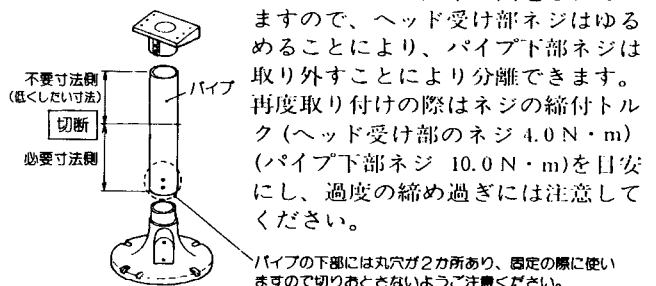 ますので、ヘッド受け部ネジはゆる
めることにより、パイプ下部ネジは
取り外すことにより分離できます。
再度取り付けの際はネジの締付トル
ク(ヘッド受け部のネジ 4.0 N・m)
(パイプ下部ネジ 10.0 N・m)を目安
にし、過度の締め過ぎには注意して
ください。
不要寸法側
(低くしたい寸法)
パイプ
切断
必要寸法側
パイプの下部には丸穴が2か所あり、固定の際に使い
ますので切りおとさないようご注意ください。